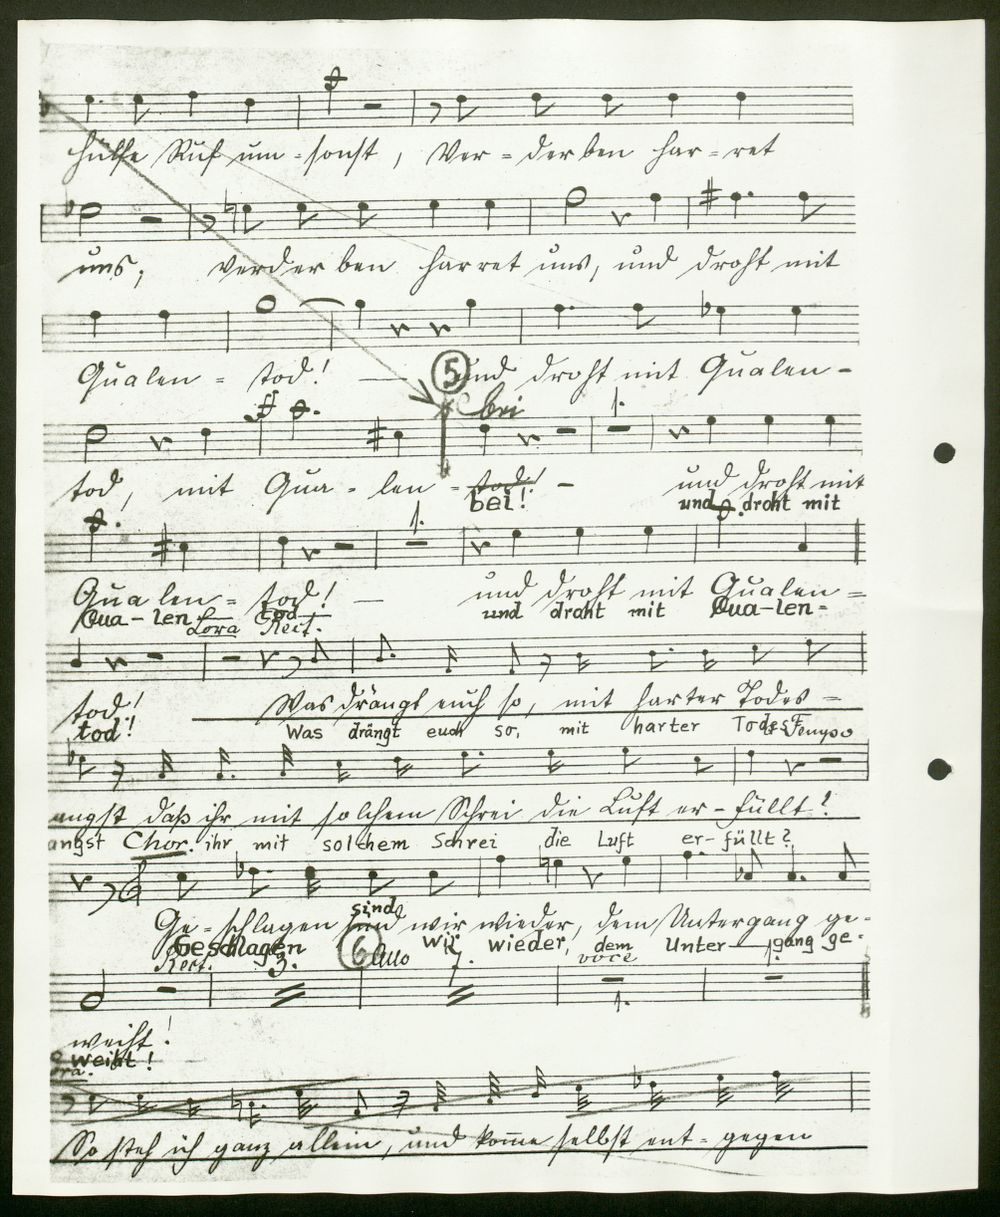 hülfe Ruf um-sonst, Ver-derben har-ret
uns; Verderben harret uns, und droht mit
Qualen-tod! — und droht mit Qualen-
5
bei
1.
tod, mit Qua-len-tod! — und droht mit
bei! und droht mit
1.
Qualen-tod! — und droht mit Qualen=
Qua-len- tod und droht mit Qua-len-
Lora Recit.
tod! Was drängt euch so, mit harter Todes=
tod! Was drängt euch so, mit harter Todes
Tempo
angst daß ihr mit solchem Schrei die Luft er-füllt?
angst Chor. ihr mit solchem Schrei die Luft er-füllt?
Ge-schlagen sind wir wieder, dem Untergang ge-
sind
Geschlagen wir wieder, dem Unter-gang ge-
Recit. 3. 6 Allo 7. voce 1.
1.
weiht!
weiht!
So steh ich ganz allein, und kome selbst ent-gegen